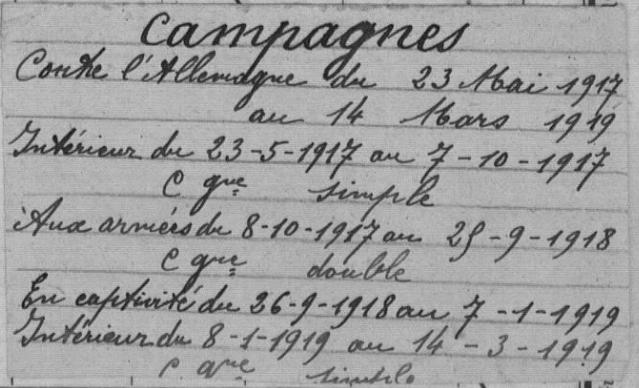 Campagnes
Contre l'Allemagne du 23 Mai 1917
au 14 Mars 1919
Intérieur du 23-5-1917 au 7-10-1917
C gne simple
Aux armées du 8-10-1917 au 25-9-1918
C gne double
En captivité du 26-9-1918 au 7-1-1919
Intérieur du 8-1-1919 au 14-3-1919
C gne simple